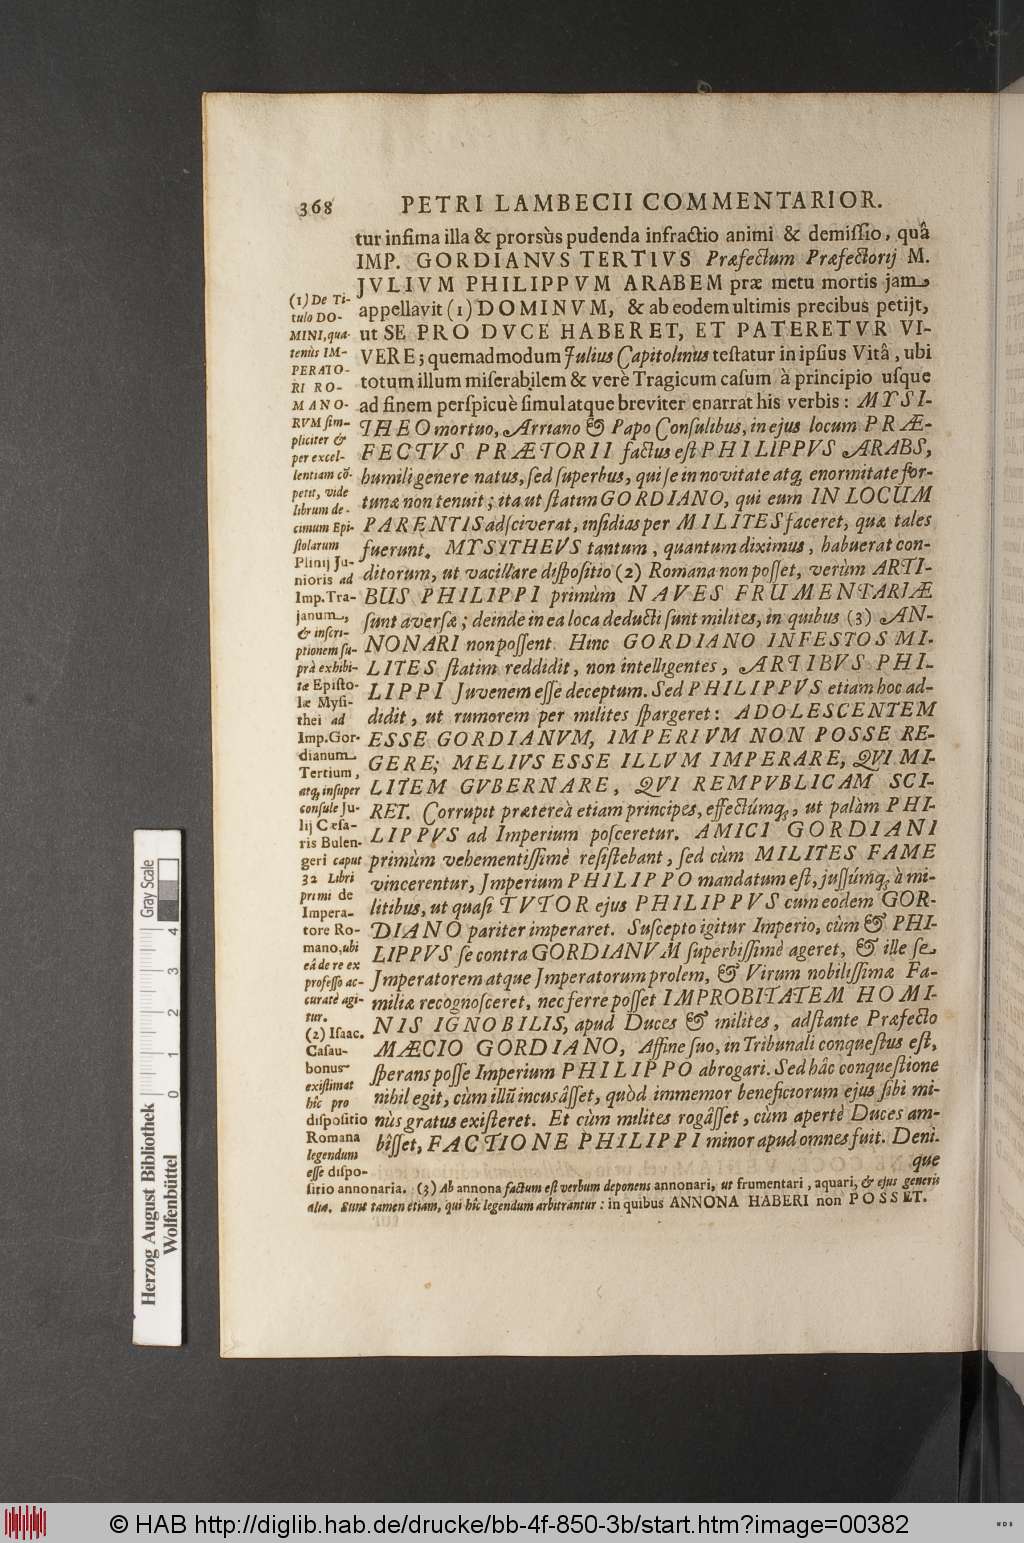 368 PETRI LAMBECII COMMENTARIOR.
tur infima illa & prorsùs pudenda infractio animi & demiſſio, quâ
IMP. GORDIANVS TERTIVS Præfectum Præfectorij M.
JVLIVM PHILIPPVM ARABEM præ metu mortis jam
appellavit (1) DOMINVM, & ab eodem ultimis precibus petijt,
ut SE PRO DVCE HABERET, ET PATERETVR VI-
VERE; quemadmodum Julius Capitolinus teſtatur in ipſius Vitâ, ubi
totum illum miſerabilem & verè Tragicum caſum à principio uſque
ad finem perſpicuè ſimulatque breviter enarrat his verbis: MYSI-
THEO mortuo, Arriano & Papo Conſulibus, in ejus locum PRÆ-
FECTVS PRÆTORII factus eſt PHILIPPVS ARABS,
humili genere natus, ſed ſuperbus, qui ſe in novitate atq, enormitate for-
tunæ non tenuit; ita ut ſtatim GORDIANO, qui eum IN LOCUM
PARENTIS adſciverat, inſidias per MILITES faceret, quæ tales
fuerunt. MYSITHEUS tantum, quantum diximus, habuerat con-
ditorum, ut vacillare diſpoſitio (2) Romana non poſſet, verùm ARTI-
BUS PHILIPPI primùm NAVES FRUMENTARIÆ
ſunt averſæ; deinde in ea loca deducti ſunt milites, in quibus (3) AN-
NONARI non poſſent. Hinc GORDIANO INFESTOS MI-
LITES ſtatim reddidit, non intelligentes, ARTIBVS PHI-
LIPPI Juvenem eſſe deceptum. Sed PHILIPPVS etiam hoc ad-
didit, ut rumorem per milites ſpargeret: ADOLESCENTEM
ESSE GORDIANVM, IMPERIVM NON POSSE RE-
GERE; MELIVS ESSE ILLVM IMPERARE, QVI MI-
LITEM GVBERNARE, QVI REMPVBLICAM SCI-
RET. Corrupit prætereà etiam principes, effectúmq,, ut palàm PHI-
LIPPVS ad Imperium poſceretur. AMICI GORDIANI
primùm vehementiſſimè reſiſtebant, ſed cùm MILITES FAME
vincerentur, Imperium PHILIPPO mandatum eſt, juſſúmq, à mi-
litibus, ut quaſi TVTOR ejus PHILIPPVS cum eodem GOR-
DIANO pariter imperaret. Suſcepto igitur Imperio, cùm & PHI-
LIPPVS ſe contra GORDIANVM ſuperbiſſimè ageret, & ille ſe
Imperatorem atque Imperatorum prolem, & Virum nobiliſſimæ Fa-
miliæ recognoſceret, nec ferre poſſet IMPROBITATEM HOMI-
NIS IGNOBILIS, apud Duces & milites, adſtante Præfecto
MÆCIO GORDIANO, Affine ſuo, in Tribunali conqueſtus eſt,
ſperans poſſe Imperium PHILIPPO abrogari. Sed hâc conqueſtione
nihil egit, cùm illũ incusâſſet, quòd immemor beneficiorum ejus ſibi mi-
nùs gratus exiſteret. Et cùm milites rogâſſet, cùm apertè Duces am-
bîſſet, FACTIONE PHILIPPI minor apud omnes fuit. Deni.
que
(1) De Ti-
tulo DO-
MINI, qua-
tenùs IM-
PERATO-
RI RO-
MANO-
RVM ſim-
pliciter &
per excel-
lentiam cõ-
petit, vide
librum de-
cimum Epi-
ſtolarum
Plinij Ju-
nioris ad
Imp. Tra-
janum,
& inſcri-
ptionem ſu-
prà exhibi-
tæ Epiſto-
læ Myſi-
thei ad
Imp. Gor-
dianum
Tertium,
atq, inſuper
conſule Ju-
lij Cæſa-
ris Bulen-
geri caput
32 Libri
primi de
Impera-
tore Ro-
mano, ubi
eâ de re ex
profeſſo ac-
curatè agi-
tur.
(2) Iſaac.
Caſau-
bonus
exiſtimat
hîc pro
diſpoſitio
Romana
legendum
eſſe diſpo-
ſitio annonaria. (3) Ab annona factum eſt verbum deponens annonari, ut frumentari, aquari, & ejus generis
alia. Sunt tamen etiam, qui hîc legendum arbitrantur: in quibus ANNONA HABERI non POSSET.
Gray Scale
0 1 2 3 4
Herzog August Bibliothek
Wolfenbüttel
© HAB http://diglib.hab.de/drucke/bb-4f-850-3b/start.htm?image=00382